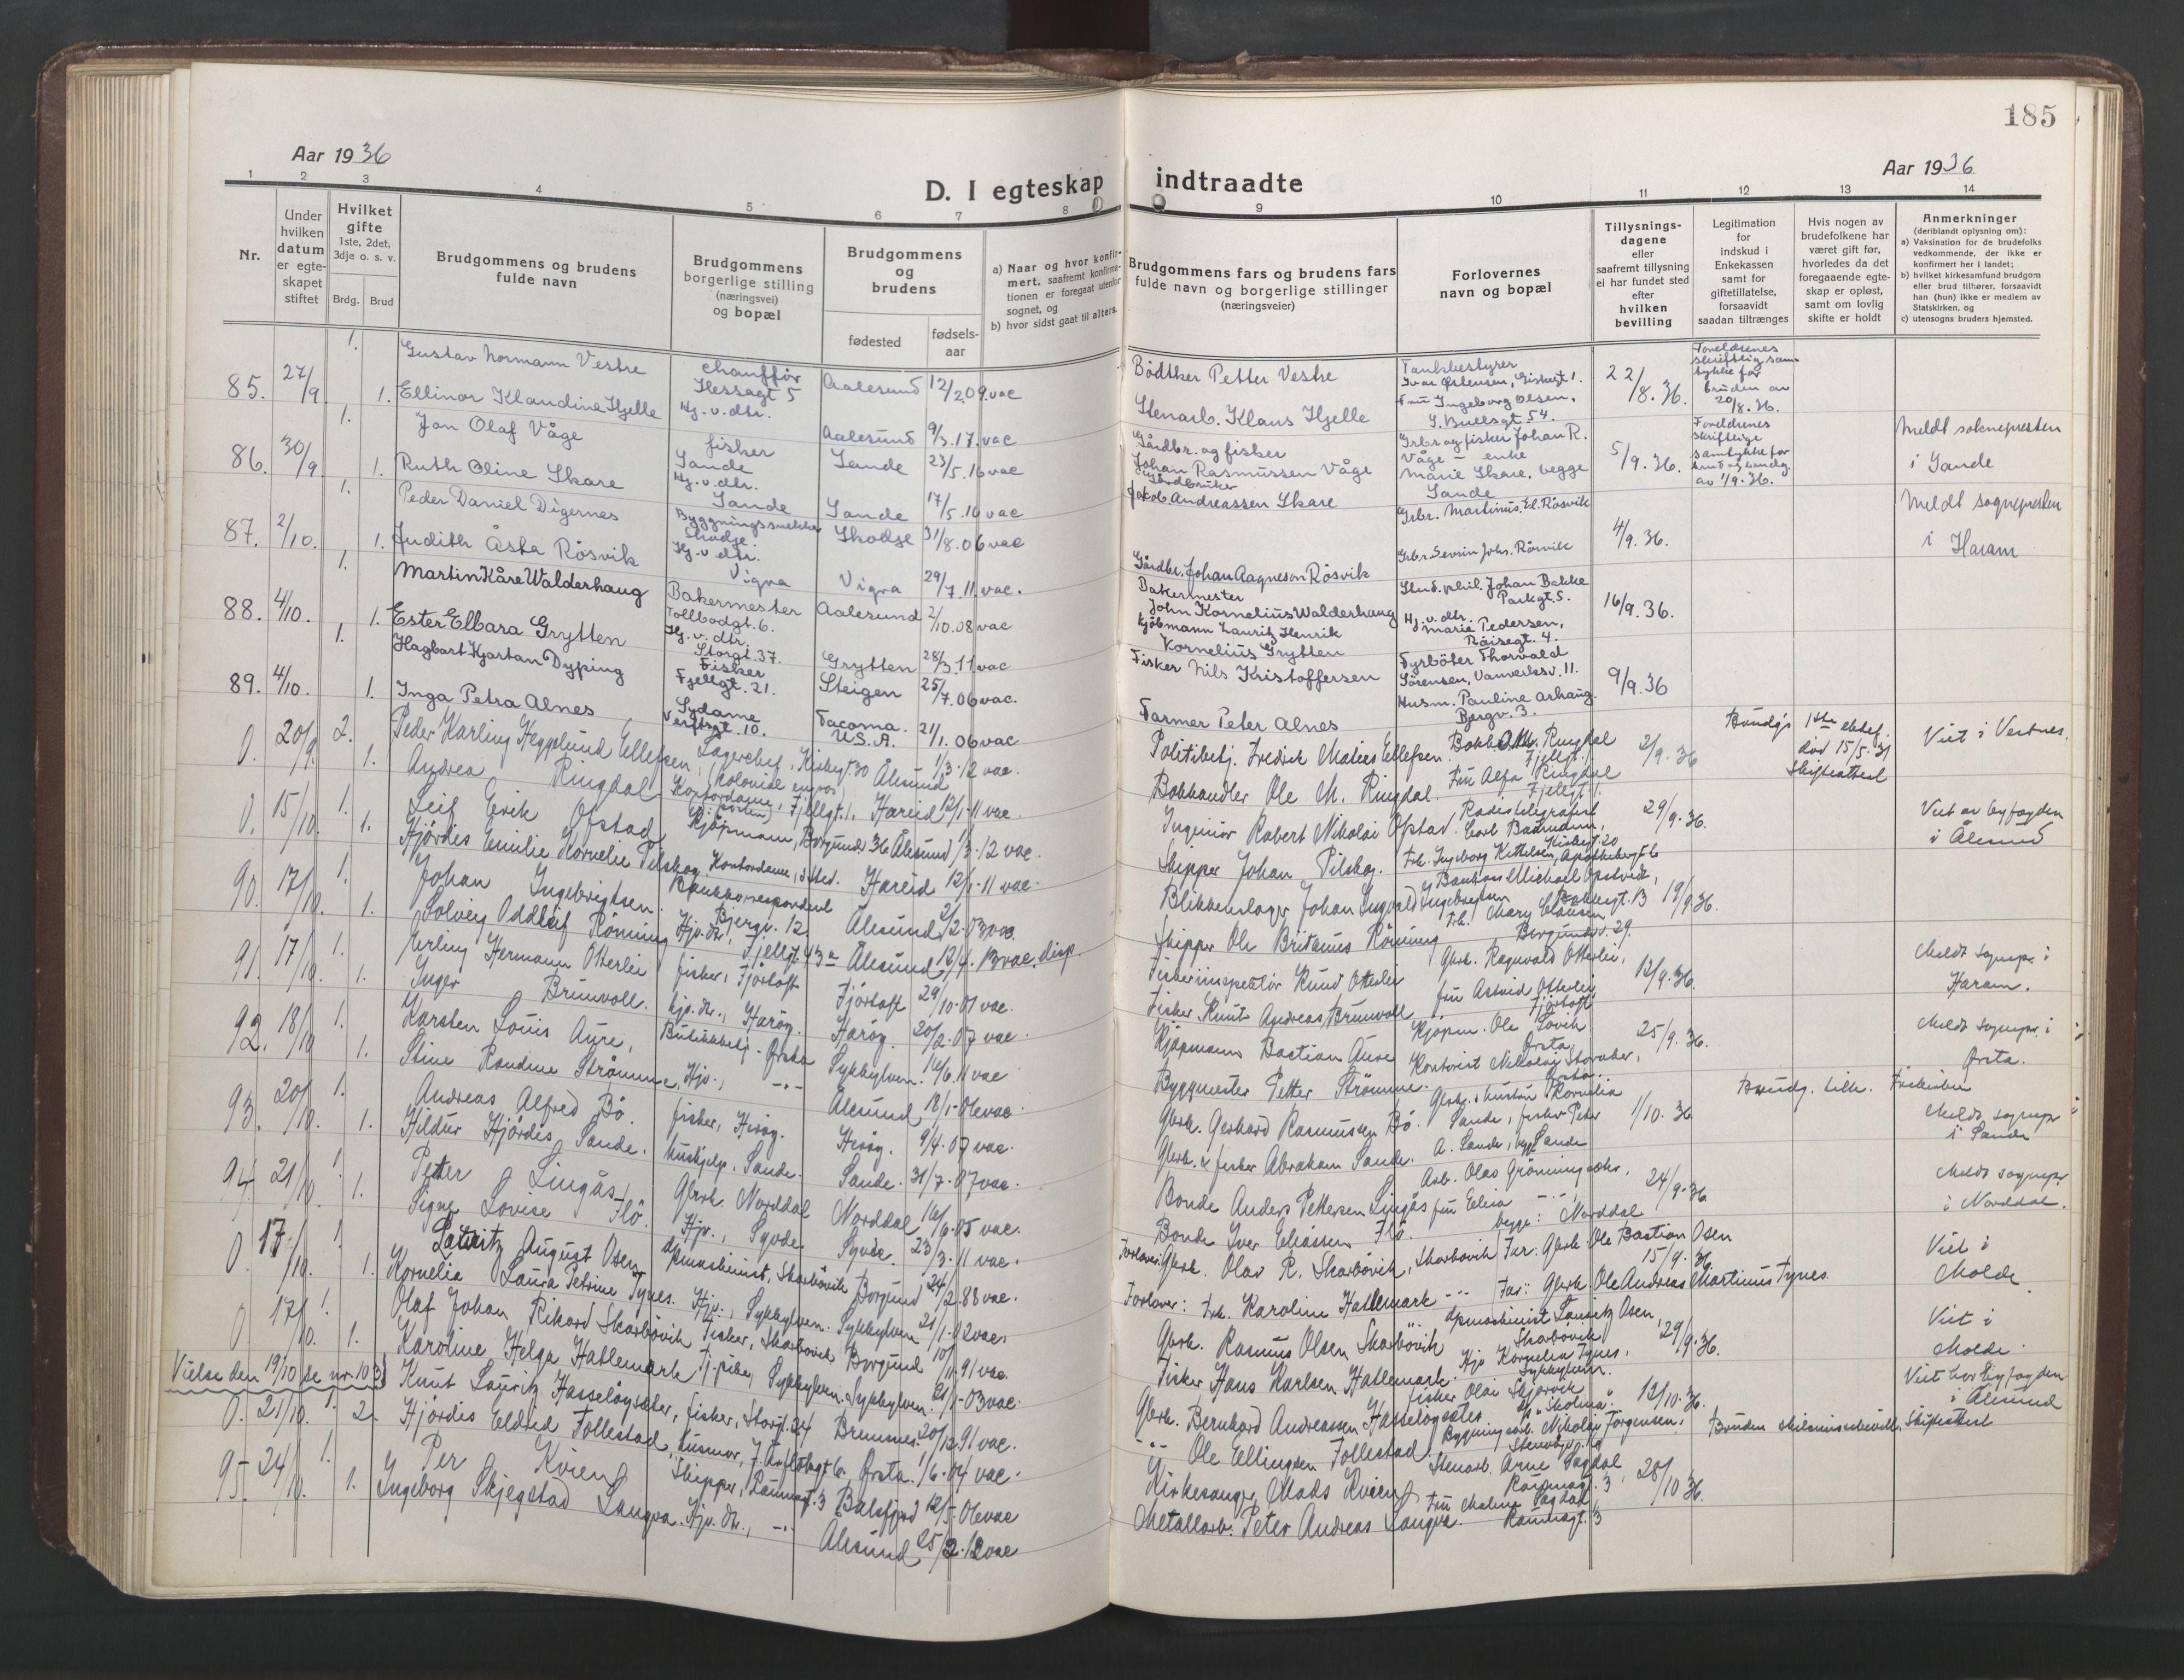 185
Aar 1936
Aar 1936
D. I egteskap indtraadte
1 2 3 4 5 6 7 8 9 10 11 12 13 14
Nr.
Under hvilken datum er egteskapet stiftet
Hvilket gifte 1ste, 2det, 3dje o. s. v.
Brdg. Brud
Brudgommens og brudens fulde navn
Brudgommens borgerlige stilling (næringsvei) og bopæl
Brudgommens og brudens
fødested
fødsels-aar
a) Naar og hvor konfirmert, saafremt konfirmationen er foregaat utenfor sognet, og
b) hvor sidst gaat til alters.
Brudgommens fars og brudens fars fulde navn og borgerlige stillinger (næringsveier)
Forlovernes navn og bopæl
Tillysningsdagene eller saafremt tillysning ei har fundet sted efter hvilken bevilling
Legitimation for indskud i Enkekassen samt for giftetillatelse, forsaavidt saadan tiltrænges
Hvis nogen av brudefolkene har været gift før, hvorledes da det foregaaende egteskap er opløst, samt om lovlig skifte er holdt
Anmerkninger (deriblandt oplysning om):
a) Vaksination for de brudefolks vedkommende, der ikke er konfirmert her i landet;
b) hvilket kirkesamfund brudgom eller brud tilhører, forsaavidt han (hun) ikke er medlem av Statskirken, og
c) utensogns bruders hjemsted.
85. 27/9 1. Gustav Normann Vestre chauffør Hessagt 5 Aalesund 12/2.09. vac Bödtker Petter Vestre Tankbestyrer Ivar Østensen, 22/8.36. Foreldrenes skriftlig samtykke for bruden av 20/8.36.
1. Ellinor Klaudine Hjelle Hj.v.dtr. Aalesund 9/3.17. vac Stenarb. Klaus Hjelle Fru Ingeborg Olsen, S. Bullsgt. 54.
86. 30/9 1. Jon Olaf Våge fisker Sande Sande 23/5.16 vac Gårdbr. og fisker Johan Rasmussen Våge Grbr og fisker Johan R. Våge - enke 5/9.36. Foreldrenes skriftlige samtykke for brud og brudg. av 1/9.36. Meldt soknepresten i Sande
1. Ruth Oline Skare Hj.v.dtr. Sande Sande 17/5.16 vac Gårdbruker Jakob Andreassen Skare Marie Skare, begge Sande
87. 2/10. 1. Peder Daniel Digernes Byggningssnekker Skodje. Skodje 31/8.06 vac Grbr. Martinus El. Rösvik 4/9.36. Meldt sognepresten i Haram
1. Judith Åsta Rösvik Hj.v.dtr. Vigra Vigra 29/7.11. vac. Gårdbr. Johan Aagneson Rösvik Grbr. Sevrin Johs. Rösvik
88. 4/10. 1. Martin Kåre Walderhaug Bakermester Tollbodgt. 6. Aalesund 2/10.08 vac Bakermester John Kornelius Walderhaug Stud. phil. Johan Bakke Parkgt. 5. 16/9.36.
1. Ester Elbara Grytten Hj.v.dtr. Storgt. 37. Grytten 28/3.11 vac Kjöbmann Lauritz Henrik Kornelius Grytten Hj.v.dtr. Marie Pedersen, Röisegt. 4.
89. 4/10. 1. Hagbart Kjartan Dyping Fisker Fjellgt. 21. Steigen 25/7.06 vac. Fisker Nils Kristoffersen Fyrböter Thorvald Sörensen, Vanverksv. 11. 9/9.36
1. Inga Petra Alnes Sydame Verftsgt. 10. Tacoma. U.S.A. 21/1.06 vac Farmer Peter Alnes Husm. Pauline Arhaug. Borgv. 3.
0. 20/9. 2. Peder Karling Heggelund Ellefsen, Lagerchef, Kirkegt. 30 (kolonial engros) Ålesund 1/3.12 vac. Politibetj. Fredrik Matias Ellefsen. Bokh. O.M. Ringdal Fjellgt. 1. 2/9.36 Brudg's 1ste ektef. död 15/5.31 Skifteattest Viet i Vestnes.
1. Andrea Ringdal Kontordame, Fjellgt. 1. Hareid 12/1.11 vac. Bokhandler Ole M. Ringdal. Fru Alfa Ringdal Fjellgt. 1.
0. 15/10. 1. Leif Erik Ofstad Kjöpmann, Borgundv. 36 Ålesund 1/3.12 vac. Ingeniör Robert Nikolai Ofstad. Radiotelegrafist Kirkegt. 20 29/9.36. Viet av byfogden i Ålesund
1. Hjördis Emilie Kornelie Pilskog Kontordame, i sted. Hareid 12/1.11 vac. Skipper Johan Pilskog. Frk. Ingeborg Kittelsen, Apothekergt. 6
90. 17/10. 1. Johan Ingebrigtsen. Bankkorrespondent Bjergv. 12 Ålesund 2/2.03 vac. Blikkenslager Johan Ingvald Ingebrigtsen Bankass. Michael Opstvedt, Bakkegt. 13 19/9.36.
1. Solveig Oddlaug Rönning Hjv. dtr., Fjellgt. 43a Ålesund 12/4.13 vac. disp. Skipper Ole Britanus Rönning Frk. Mary Clausen Borgundv. 29.
91. 17/10. 1. Erling Hermann Otterlei fisker, Fjörtoft Fjörtoft 29/10.01 vac. Fiskeriinspektör Knud Otterlei Gbrk. Ragnvald Otterlei, 12/9.36. Meldt sognepr. i Haram.
1. Inger Brunvoll. hjv. dtr., Haröy. Haröy. 20/2.07 vac. Fisker Knut Andreas Brunvoll fru Astrid Otterlei Fjörtoft
92. 18/10 1. Karsten Louis Aure, Butikkbetj. Ørsta Sykkylven. 16/6.11 vac Kjöpmann Bastian Aure Kjöpm. Ole Lovik Ørsta, 25/9.36. Meldt sognepr. i Ørsta.
1. Stine Randine Strömme, Hjv., -"- Ålesund 18/1.06 vac. Byggmester Petter Strömme. Kontorist Nikolai Ørsta.
93. 20/10. 1. Andreas Alfred Bö. fisker, Heröy. Heröy. 9/4.07 vac. Gbrk. Gerhard Rasmussen Bö. Gbrk. & hustru Kornelia Sande, fisker Peter 1/10.36 Brudg. tilh. Frikirken Meldt sognepr. i Sande
1. Hildur Hjördis Sande. hushjelp. Sande. Sande. 31/7.07 vac. Gbrk. & fisker Abraham Sande. A. Sande, begge Sande
94. 21/10. 1. Peter Lingås, Gbrk. Norddal Norddal 16/6.05 vac. Bonde Anders Pettersen Lingås Arb. Olas Grönningsæter, 24/9.36 Meldt sognepr. i Norddal.
1. Signe Lovise Flö. Hjv., Syvde. Syvde. 23/3.11 vac. Bonde Iver Eliassen Flö. fru Elia -"- begge: Norddal
0. 17/10. 1. Lauritz August Osen, dpmaskinist, Skarbövik Borgund 24/2.88 vac. Forlover: Gbrk. Olav R. Skarbövik, Skarbövik Far: Gbrk. Ole Bastian Osen 15/9.36. Viet i Molde
1. Kornelia Laura Petrine Tynes. Hjv., Sykkylven. Sykkylven 21/1.92 vac. Forlover: Frk. Karoline Hatlemark -"- Far: Gbrk. Ole Andreas Martinus Tynes.
0 17/10. 1. Olaf Johan Rikard Skarbövik Fisker, Skarbövik Borgund 10/11.91 vac. Gbrk. Rasmus Olsen Skarbövik dpmaskinist Lauritz Osen, Skarbövik 29/9.36. Viet i Molde.
1. Karoline Helga Hatlemark Tj.pike, Sykkylven. Sykkylven. 21/1.03 vac. Fisker Hans Karlsen Hatlemark. Hjv Kornelia Tynes, Sykkylven.
Vielse den 19/10 se nr. 103
0. 21/10. 1. Knut Lauritz Hasseløysæter, fisker, Storgt. 24 Bremsnes. 20/12.91 vac. Gbrk. Bernhard Andreassen Hasselöysæter fisker Olai Skjørvik 12/10.36. Viet hos byfogden i Ålesund
2. Hjördis Eldrid Follestad, husmor, Ørsta. 1/6.04 vac. -"- Ole Ellingsen Follestad. Bygningsarb. Nikolai Jörgensen. Bruden skilsmissebevill. Skifteattest
95. 24/10. 1. Per Kvien Skipper, Raumagt. 3 Balsfjord 12/5.06 vac Kirkesanger Mads Kvien Stenarb. Arne Sogdal Raumagt. 3, 20/10 36.
1. Ingeborg Skjegstad Langva. Hjv. dtr., -"- Ålesund 25/2.12 vac Metallarb. Peter Andreas Langva. Fru Malene Sagdal Raumagt. 3